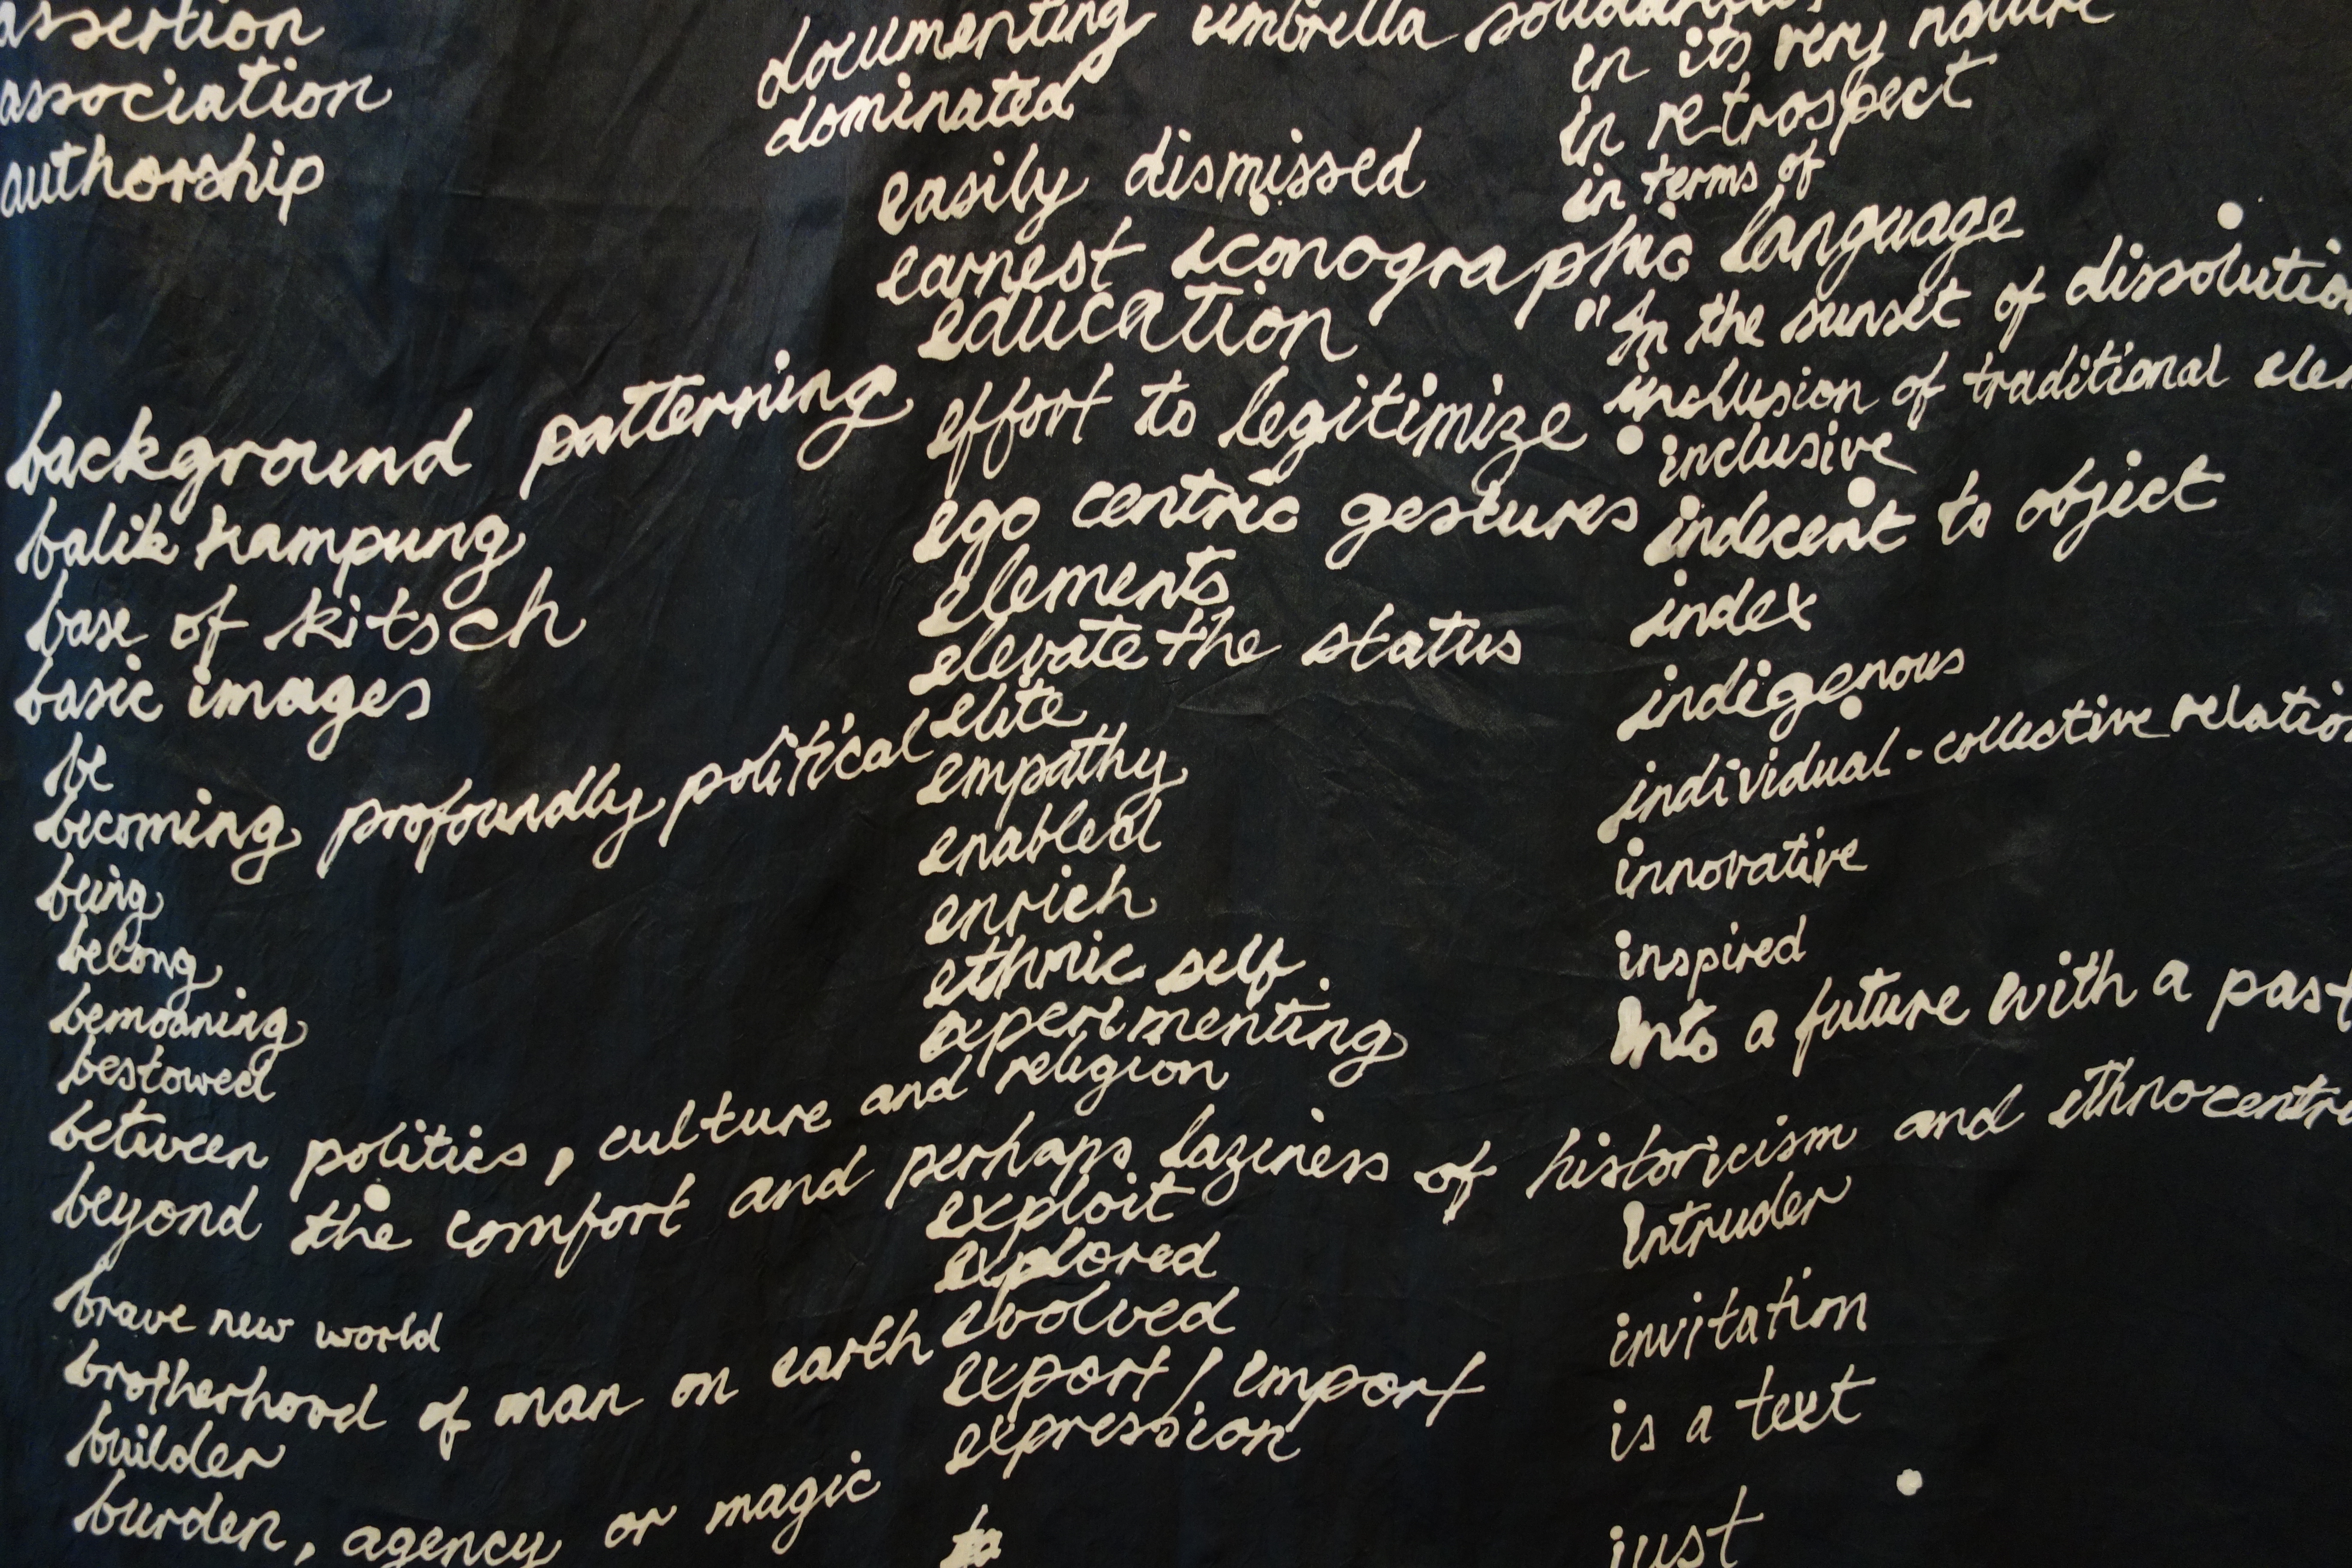 assertion
association
authorship
background patterning
balik kampung
base of kitsch
basic images
be
becoming profoundly political
being
belong
bemoaning
bestowed
between politics, culture and religion
beyond the comfort and perhaps laziness of historicism and ethnocentri
brave new world
brotherhood of man on earth
builder
burden, agency or magic
documenting umbrella
dominated
easily dismissed
earnest iconographic language
education
effort to legitimize
ego centric gestures
elements
elevate the status
elite
empathy
enabled
enrich
ethnic self
experimenting
exploit
explored
evolved
export / import
expression
in its very nature
in retrospect
in terms of
"In the sunset of dissolutio
inclusion of traditional ele
inclusive
indecent to object
index
indigenous
individual-collective relation
innovative
inspired
Into a future with a past
Intruder
invitation
is a text
just